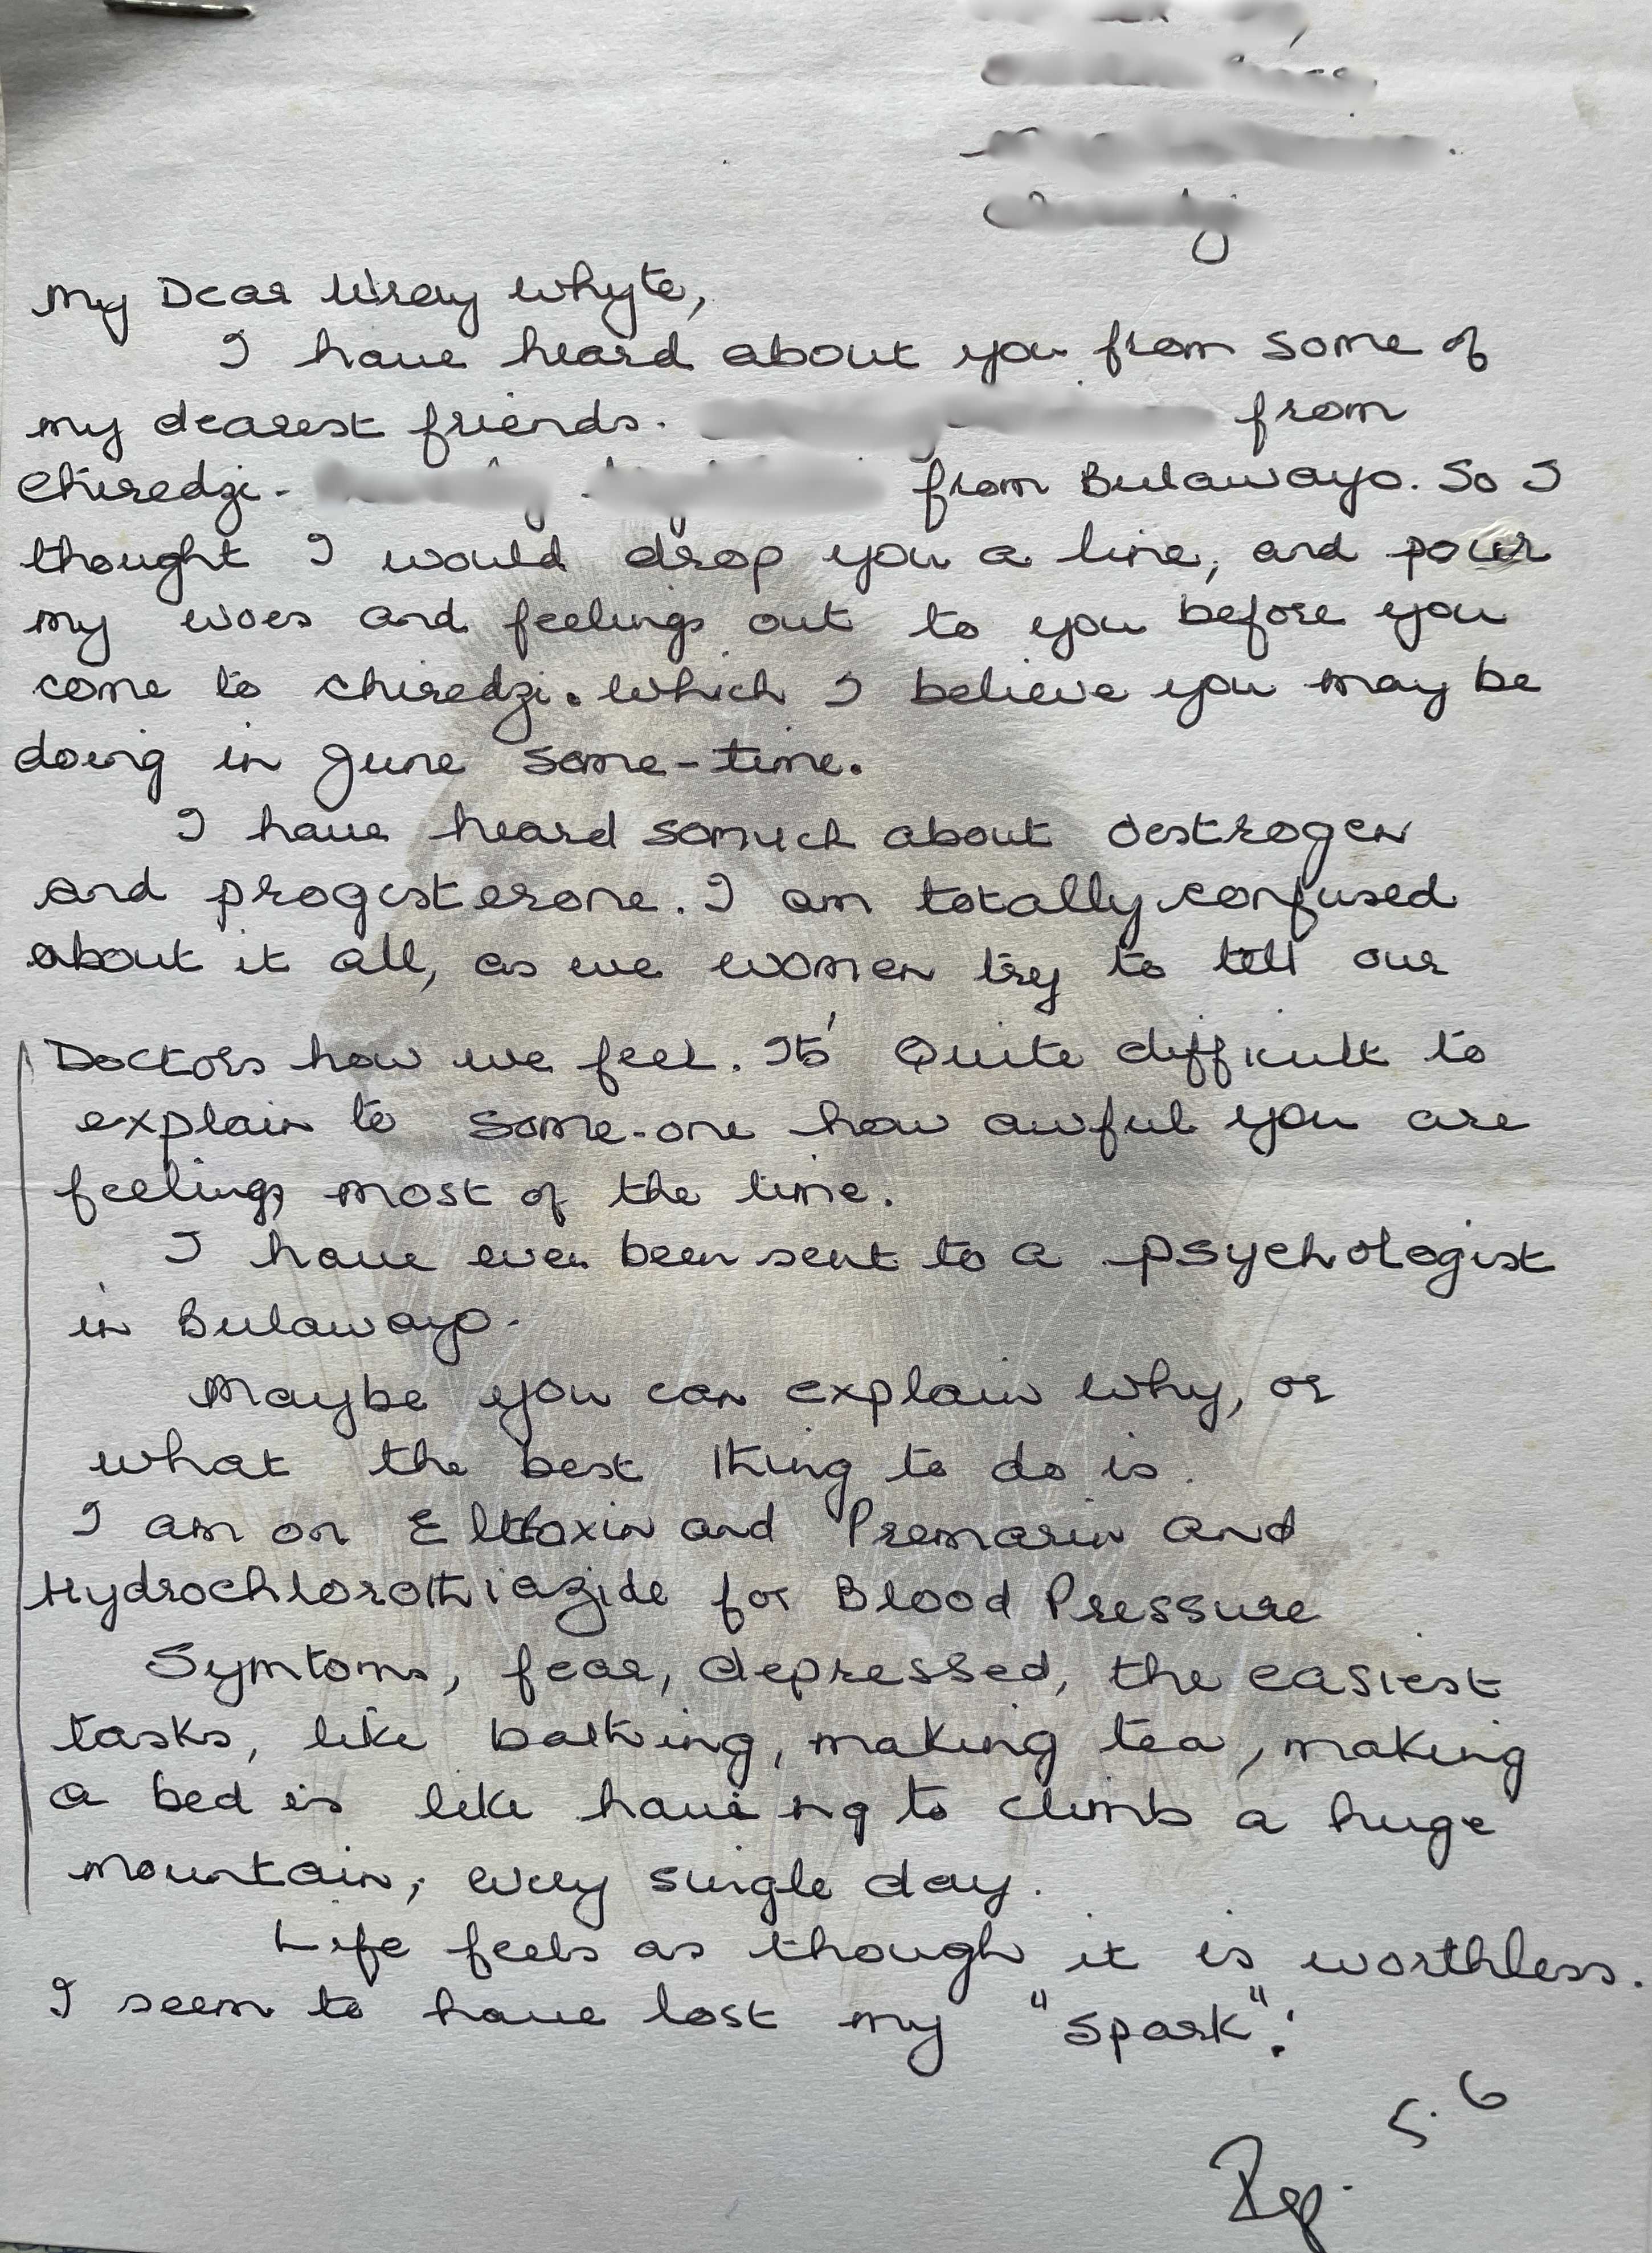 My Dear Wrey Whyte,
I have heard about you from some of
my dearest friends. from
Chiredzi. from Bulawayo. So I
thought I would drop you a line, and pour
my woes and feelings out to you before you
come to Chiredzi. Which I believe you may be
doing in June some-time.
I have heard somuch about Oestrogen
and progesterone. I am totally confused
about it all, as we women try to tell our
Doctors how we feel. Its' Quite difficult to
explain to some-one how awful you are
feeling most of the time.
I have even been sent to a psychologist
in Bulawayo.
Maybe you can explain why, or
what the best thing to do is.
I am on Elttoxin and Premarin and
Hydrochlorothiazide for Blood Pressure
Symtoms, fear, depressed, the easiest
tasks, like bathing, making tea, making
a bed is like having to climb a huge
mountain, every single day.
Life feels as though it is worthless.
I seem to have lost my "spark".'
5.6